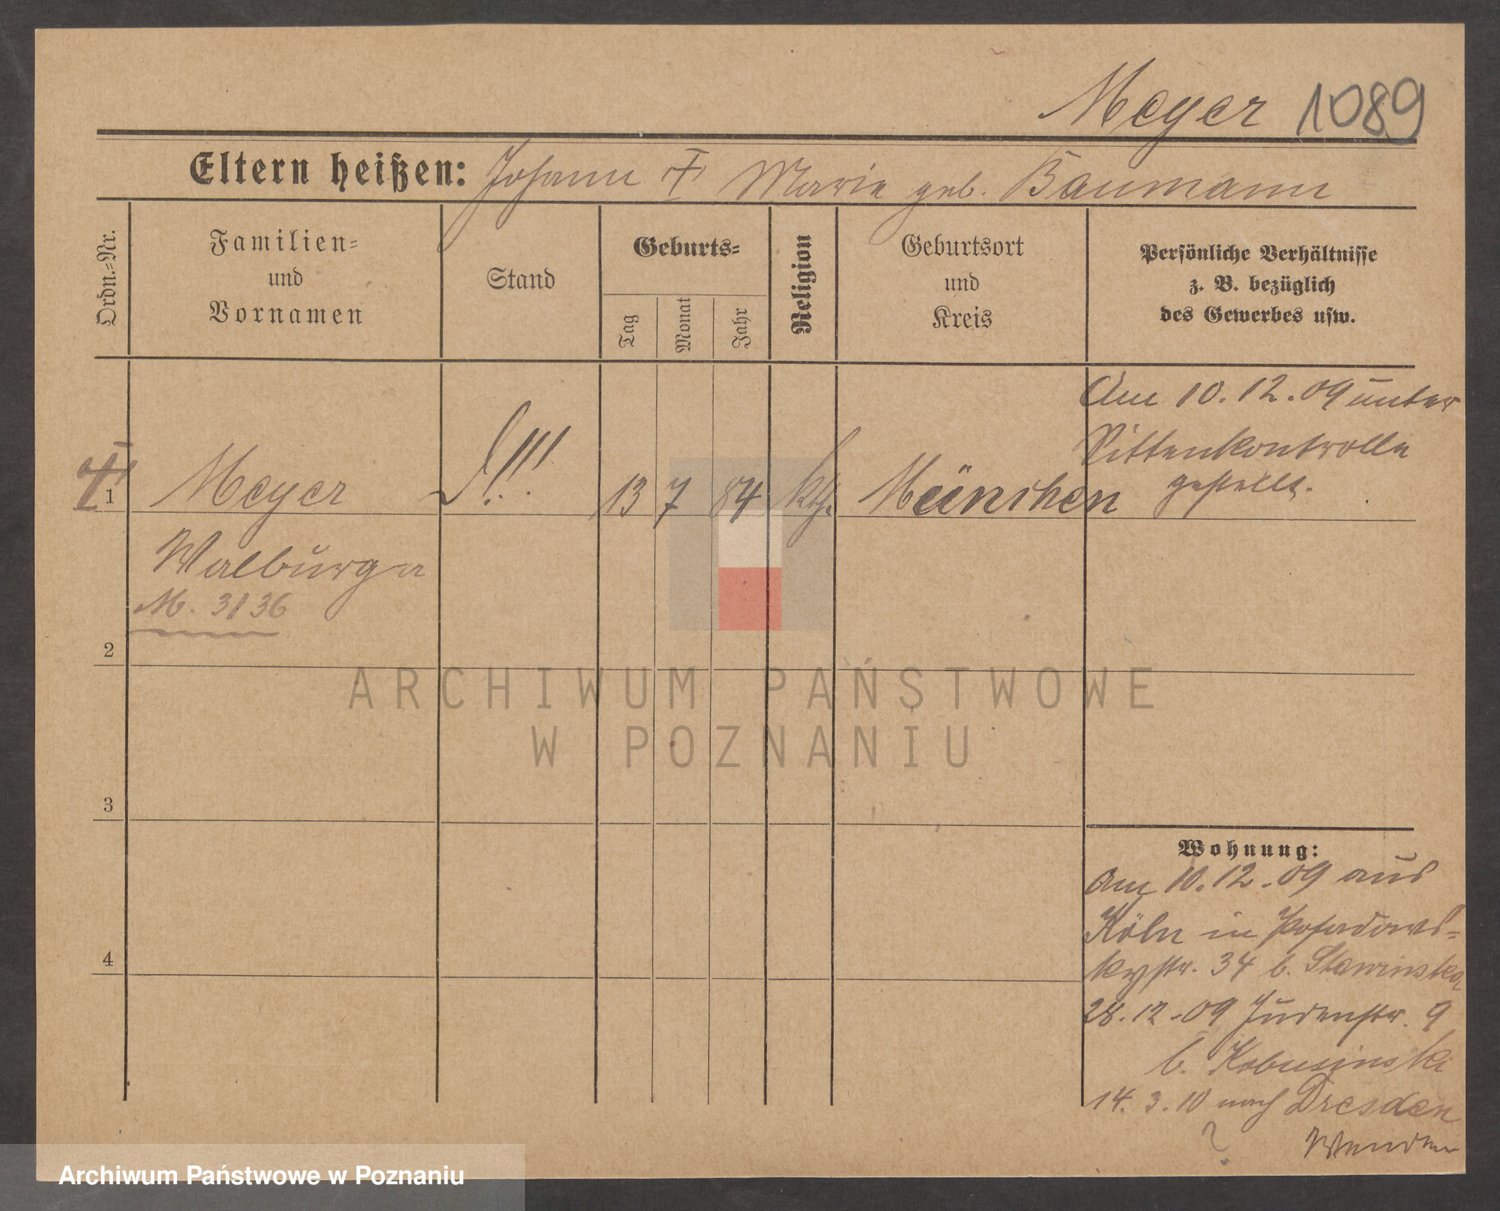 Meyer 1089
Eltern heißen: Johann † Marie geb. Baumann
Ordn.-Nr.
Familien-
und
Vornamen
Stand
Geburts-
Tag
Monat
Jahr
Religion
Geburtsort
und
Kreis
Persönliche Verhältnisse
z. B. bezüglich
des Gewerbes usw.
Am 10.12.09 unter
Sittenkontrolle
gestellt.
1 Meyer !!! 13 7 84 kth. München
Walburga
M. 3136
2
3
4
Wohnung:
Am 10.12.09 aus
Köln in Posadows-
kystr. 34 b. Slawinska
28.12.09 Judenstr. 9
b. Kobusinski
14.3.10 nach Dresden
?
ARCHIWUM PAŃSTWOWE
W POZNANIU
Archiwum Państwowe w Poznaniu